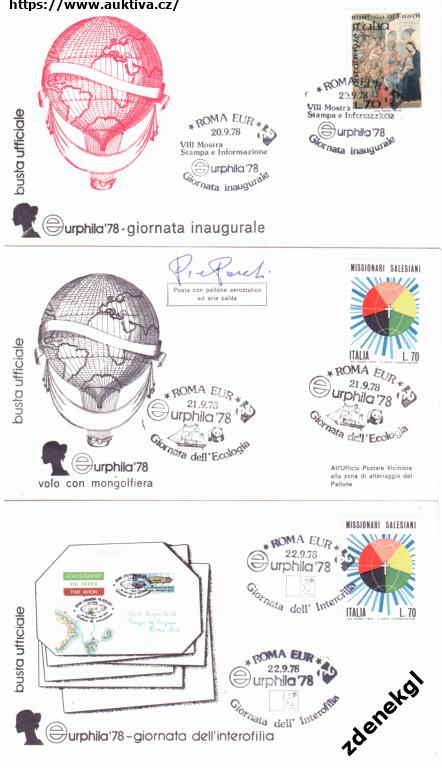 https://www.auktiva.cz/
busta ufficiale
Italia
L.70
* ROMA EUR *
20.9.78
VIII Mostra
Stampa e Informazione
eurphila '78
Giornata inaugurale
* ROMA EUR *
20.9.78
VIII Mostra
Stampa e Informazione
eurphila '78
Giornata inaugurale
eurphila '78 - giornata inaugurale
busta ufficiale
Posta con pallone aerostatico
ad aria calda
MISSIONARI SALESIANI
ITALIA L. 70
* ROMA EUR *
21.9.78
eurphila '78
Giornata dell'Ecologia
* ROMA EUR *
21.9.78
eurphila '78
Giornata dell'Ecologia
eurphila '78
volo con mongolfiera
All'Ufficio Postale Viciniore
alla zona di atterraggio del
Pallone
busta ufficiale
AEROGRAMME
VIA AEREA
PAR AVION
MISSIONARI SALESIANI
ITALIA L. 70
* ROMA EUR *
22.9.78
eurphila '78
Giornata dell' Interofilia
* ROMA EUR *
22.9.78
eurphila '78
Giornata dell' Interofilia
eurphila '78 - giornata dell'interofilia
zdenekgl